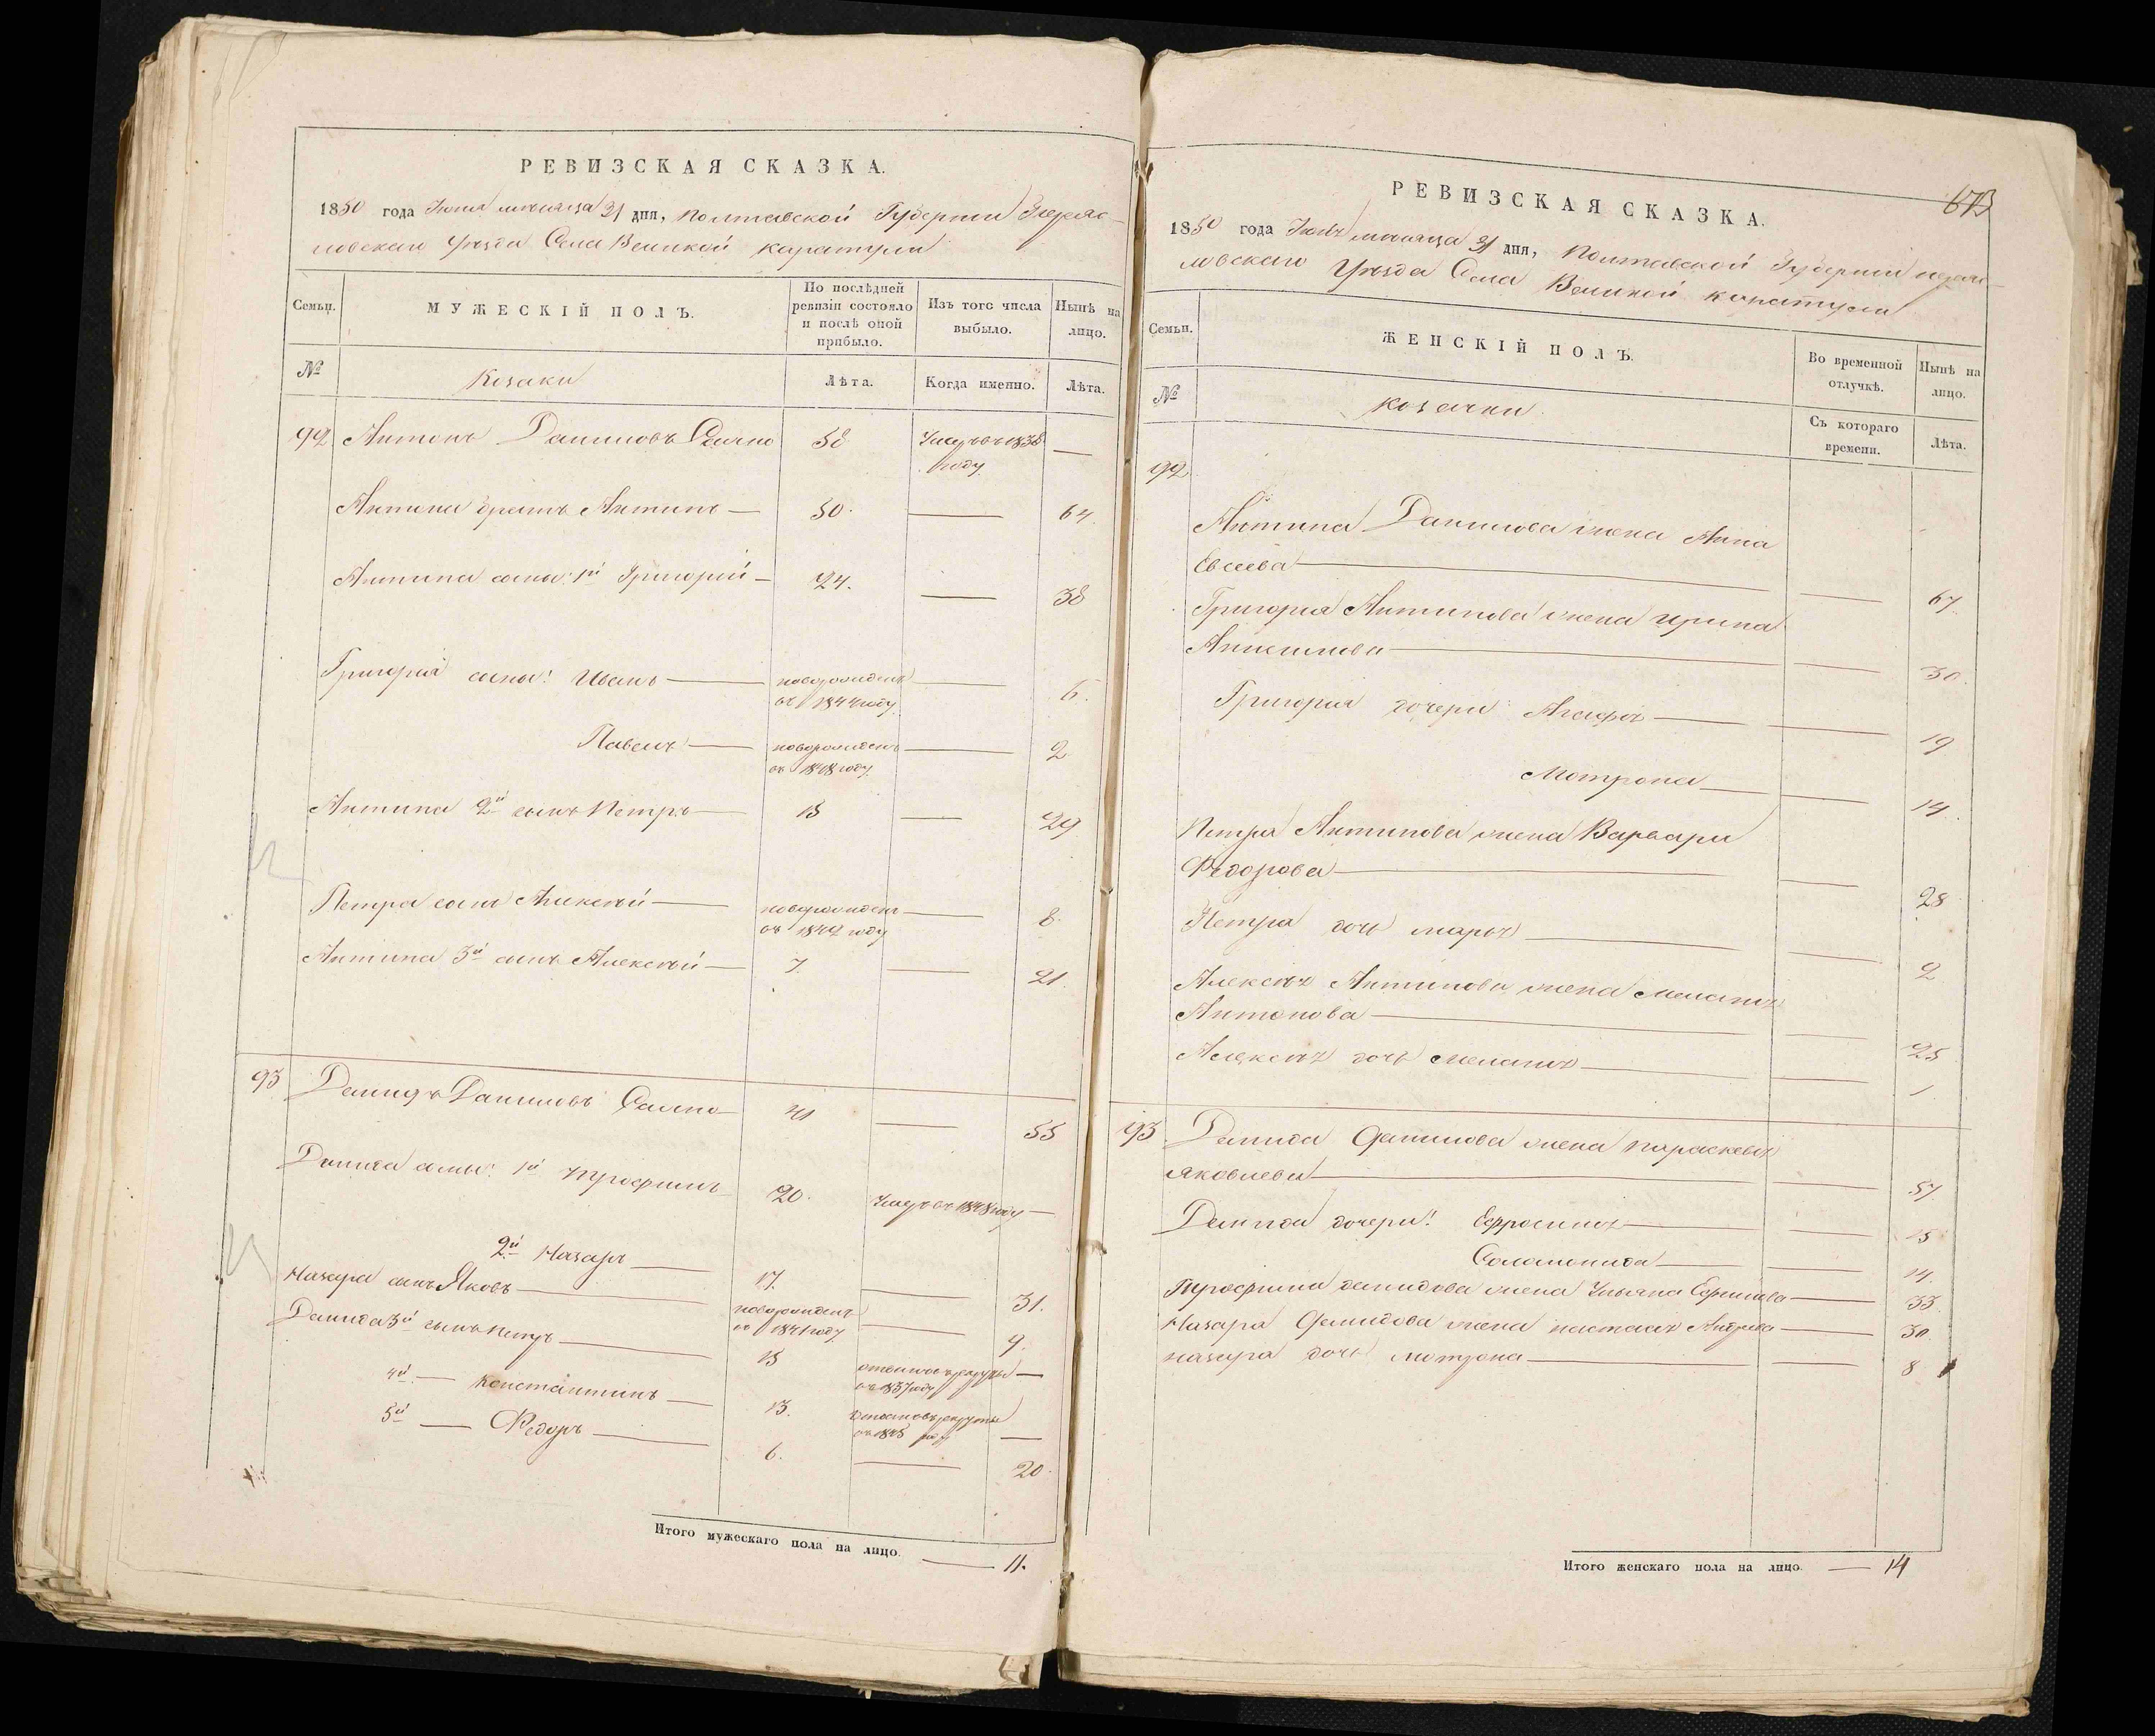 РЕВИЗСКАЯ СКАЗКА.
1850 года Июля мѣсяца 31 дня, Полтавской Губерніи Переяс-
ловскаго Уѣзда Села Великой Каратули
Семьи.
МУЖЕСКІЙ ПОЛЪ.
По послѣдней ревизіи состояло и послѣ оной прибыло.
Изъ того числа выбыло.
Нынѣ на лицо.
№
Козаки
Лѣта.
Когда именно.
Лѣта.
92 Антонъ Даниловъ 58 Умеръ въ 1838 —
году
Антона братъ Антипъ — 50. — 64.
Антипа сыны: 1й Григорій — 24. — 38
Григорія сыны: Иванъ — новорожденъ — 6.
въ 1844 году
Павелъ — новорожденъ — 2
въ 1848 году
Антипа 2й сынъ Петръ — 15 — 29
Петра сынъ Алексѣй — новорожденъ — 8.
въ 1842 году
Антипа 3й сынъ Алексѣй — 7. — 21.
93 Демидъ Даниловъ 41 — 55
Демида сыны: 1й Трофимъ 20. Умеръ въ 1848 году —
2й Назаръ — 17. — 31.
Назара сынъ Яковъ — новорожденъ — 9.
въ 1841 году
Демида 3й сынъ Петръ — 15 отданъ въ рекруты —
въ 1837 году
4й — Константинъ — 13. отданъ въ рекруты —
въ 1845 году
5й — Федоръ — 6. — 20.
Итого мужескаго пола на лицо. — 11.
673
РЕВИЗСКАЯ СКАЗКА.
1850 года Июля мѣсяца 31 дня, Полтавской Губерніи Переяс-
ловскаго Уѣзда Села Великой Каратули
Семьи.
ЖЕНСКІЙ ПОЛЪ.
Во временной отлучкѣ.
Нынѣ на лицо.
№
Козачки
Съ котораго времени.
Лѣта.
92
Антипа Данилова жена Анна
Евсеева — — 67.
Григорія Антипова жена Ирина
— — 30.
Григорія дочери: Агафія — — 19
Мотрона — — 14.
Петра Антипова жена Варвара
Федорова — — 28
Петра дочь Марія — — 2
Алексѣя Антипова жена Меланія
Антонова — — 25
Алексѣя дочь Меланія — — 1
93 Демида Данилова жена Параскевія
Яковлева — — 57.
Демида дочери: Ефросинія — — 15
Соломонида — — 14.
Трофима Демидова жена Ульяна Ефимова — 33.
Назара Демидова жена Настасія Андреева — 30.
Назара дочь Мотрона — — 8
Итого женскаго пола на лицо. — 14